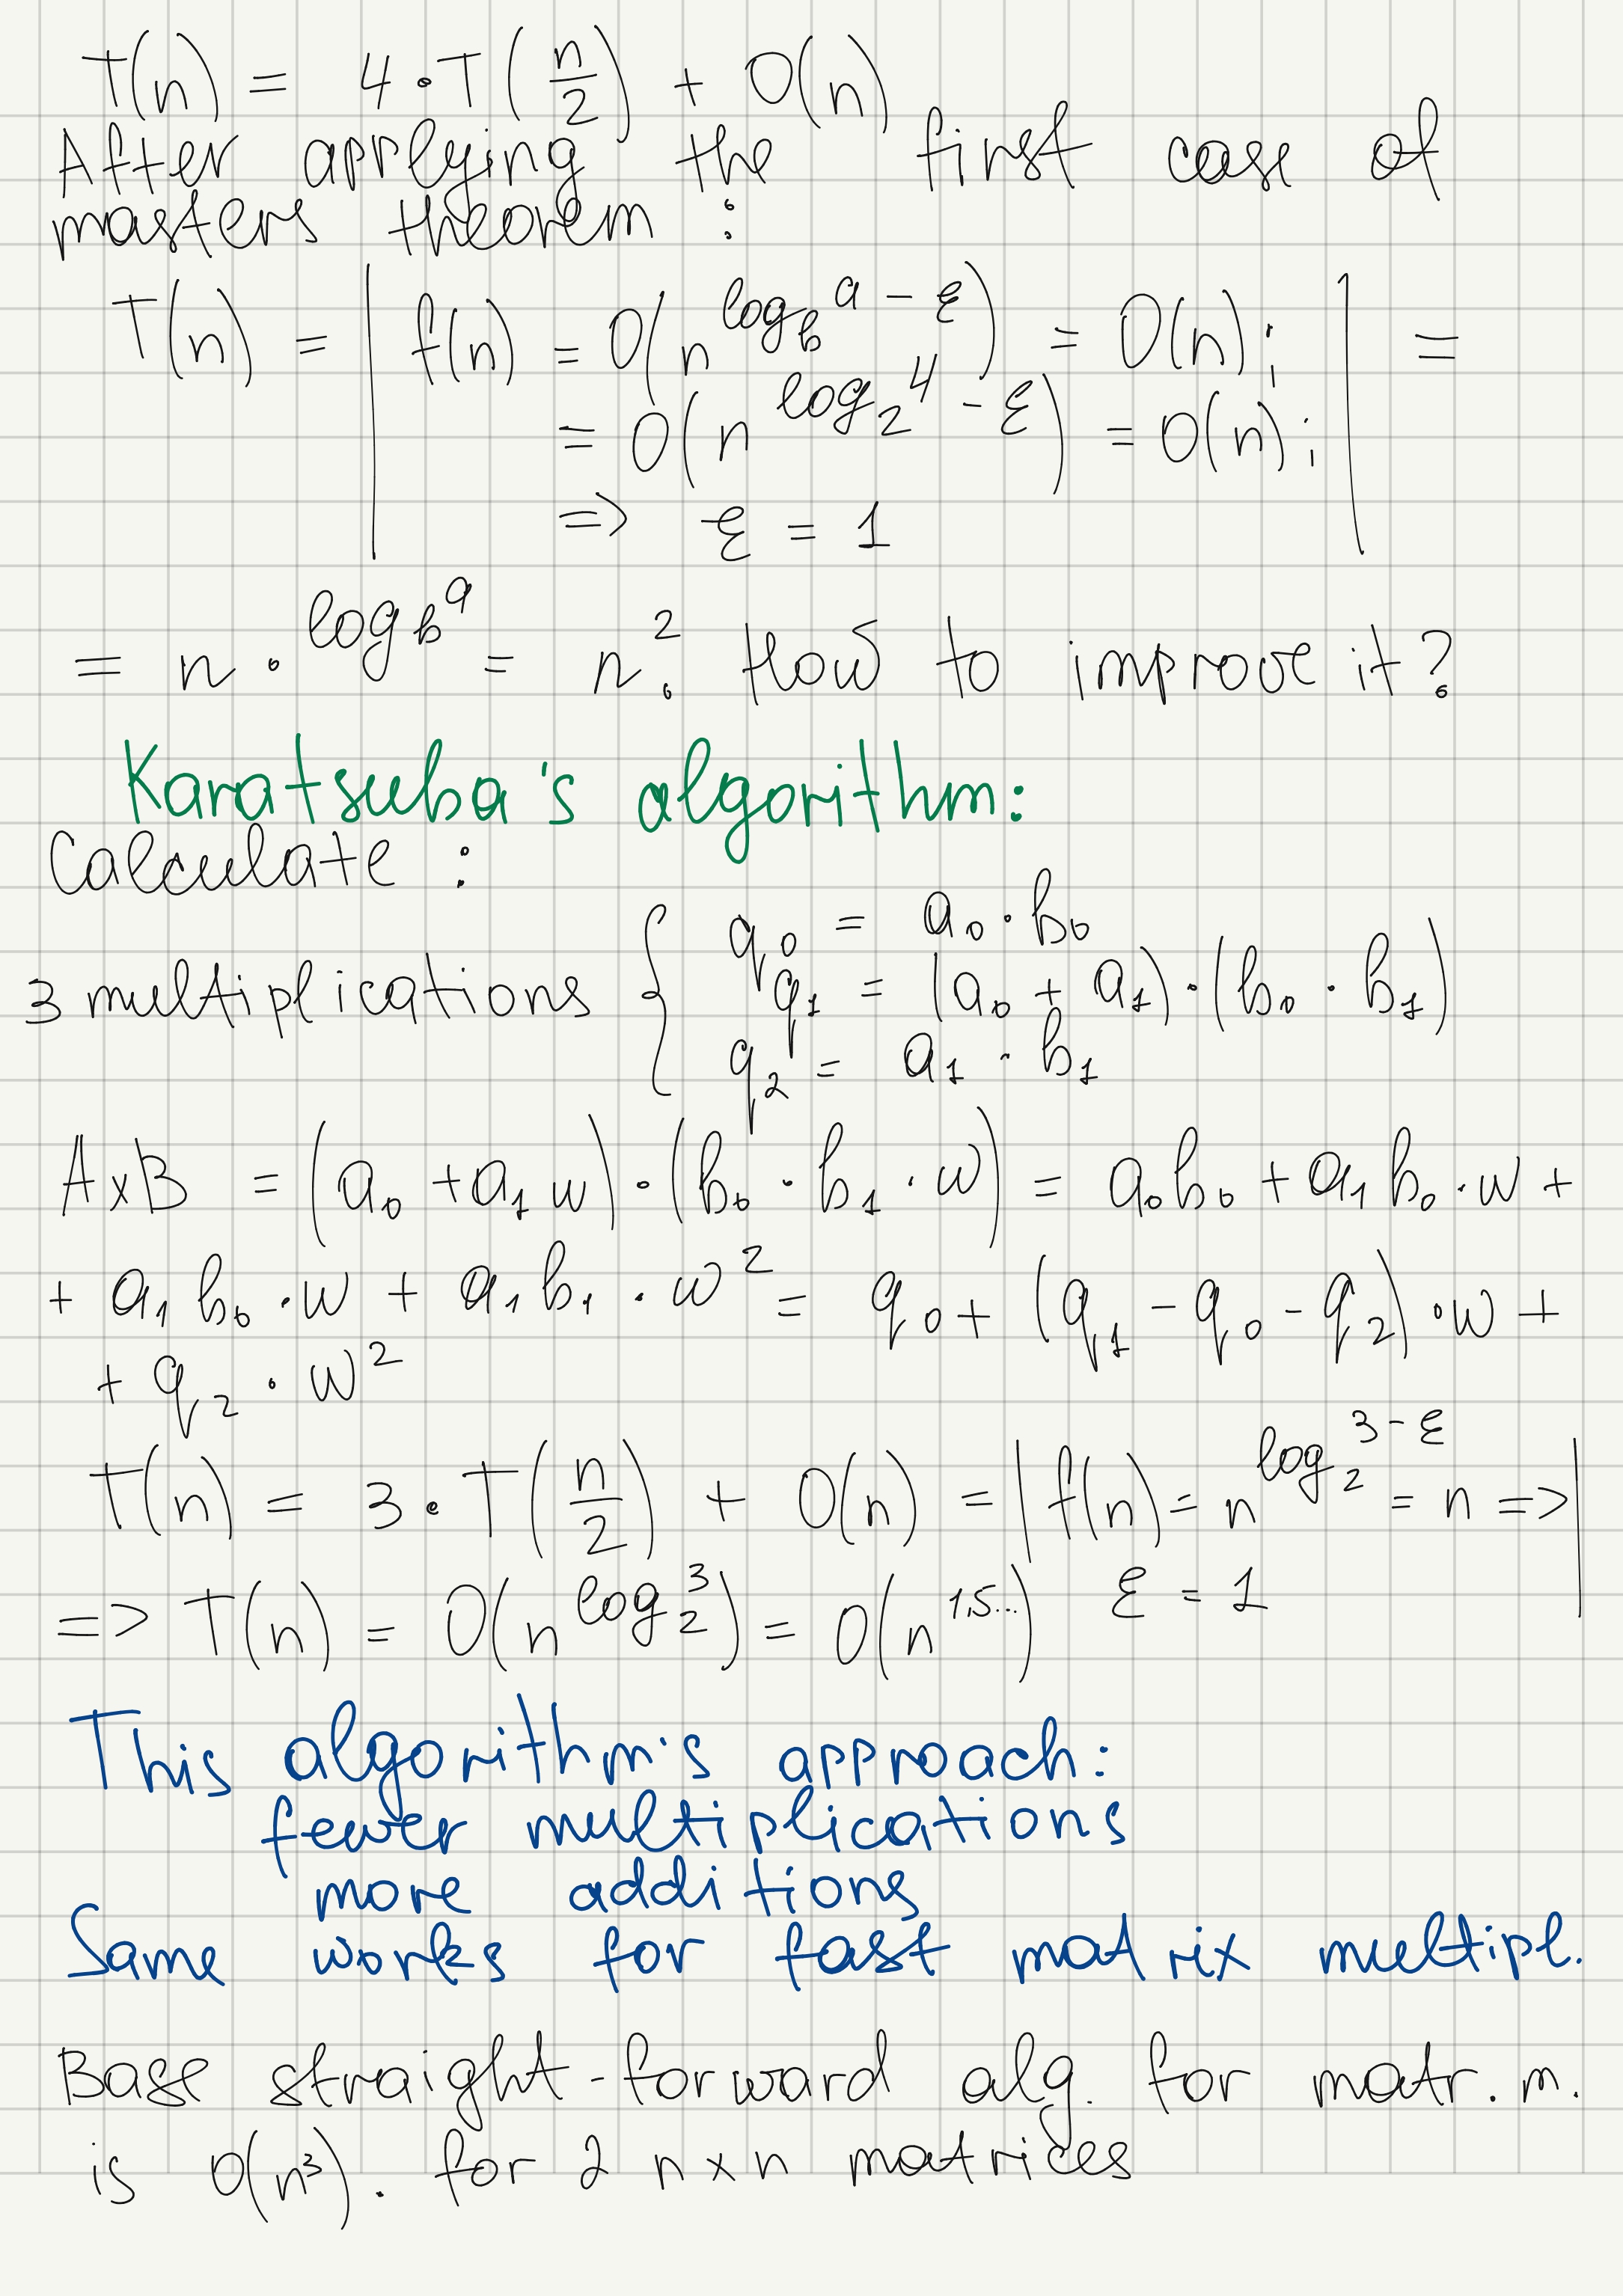 T(n) = 4 · T(n/2) + O(n)
After applying the first case of
masters theorem :
T(n) = | f(n) = O(n^(log_b a - ε)) = O(n); | =
= O(n^(log_2 4 - ε)) = O(n);
=> ε = 1
= n · ^(log_b a) = n². How to improve it?
Karatsuba's algorithm:
Calculate :
q₀ = a₀ · b₀
3 multiplications { q₁ = (a₀ + a₁) · (b₀ · b₁)
q₂ = a₁ · b₁
A×B = (a₀ + a₁ w) · (b₀ · b₁ · w) = a₀b₀ + a₁b₀ · w +
+ a₁b₀ · w + a₁b₁ · w² = q₀ + (q₁ - q₀ - q₂) · w +
+ q₂ · w²
T(n) = 3 · T(n/2) + O(n) = | f(n) = n^(log_2 3 - ε) = n => |
=> T(n) = O(n^(log_2 3)) = O(n^(1,5...)) ε = 1
This algorithm's approach:
fewer multiplications
more additions
Same works for fast matrix multipl.
Base straight-forward alg. for matr. m.
is O(n³). for 2 n×n matrices